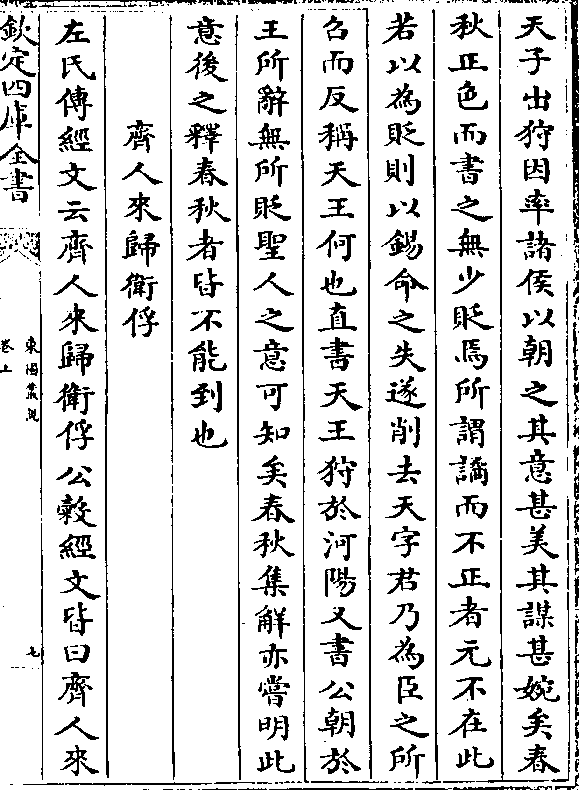 天子出狩因率諸侯以朝之其意甚美其謀甚婉矣春
秋正色而書之無少貶焉所謂譎而不正者元不在此
若以為貶則以錫命之失遂削去天字君乃為臣之所
召而反稱天王何也直書天王狩於河陽又書公朝於
王所辭無所貶聖人之意可知矣春秋集解亦嘗明此
意後之釋春秋者皆不能到也
齊人來歸衛俘
左氏傳經文云齊人來歸衛俘公穀經文皆曰齊人來
欽定四庫全書
東園叢說
卷上
七